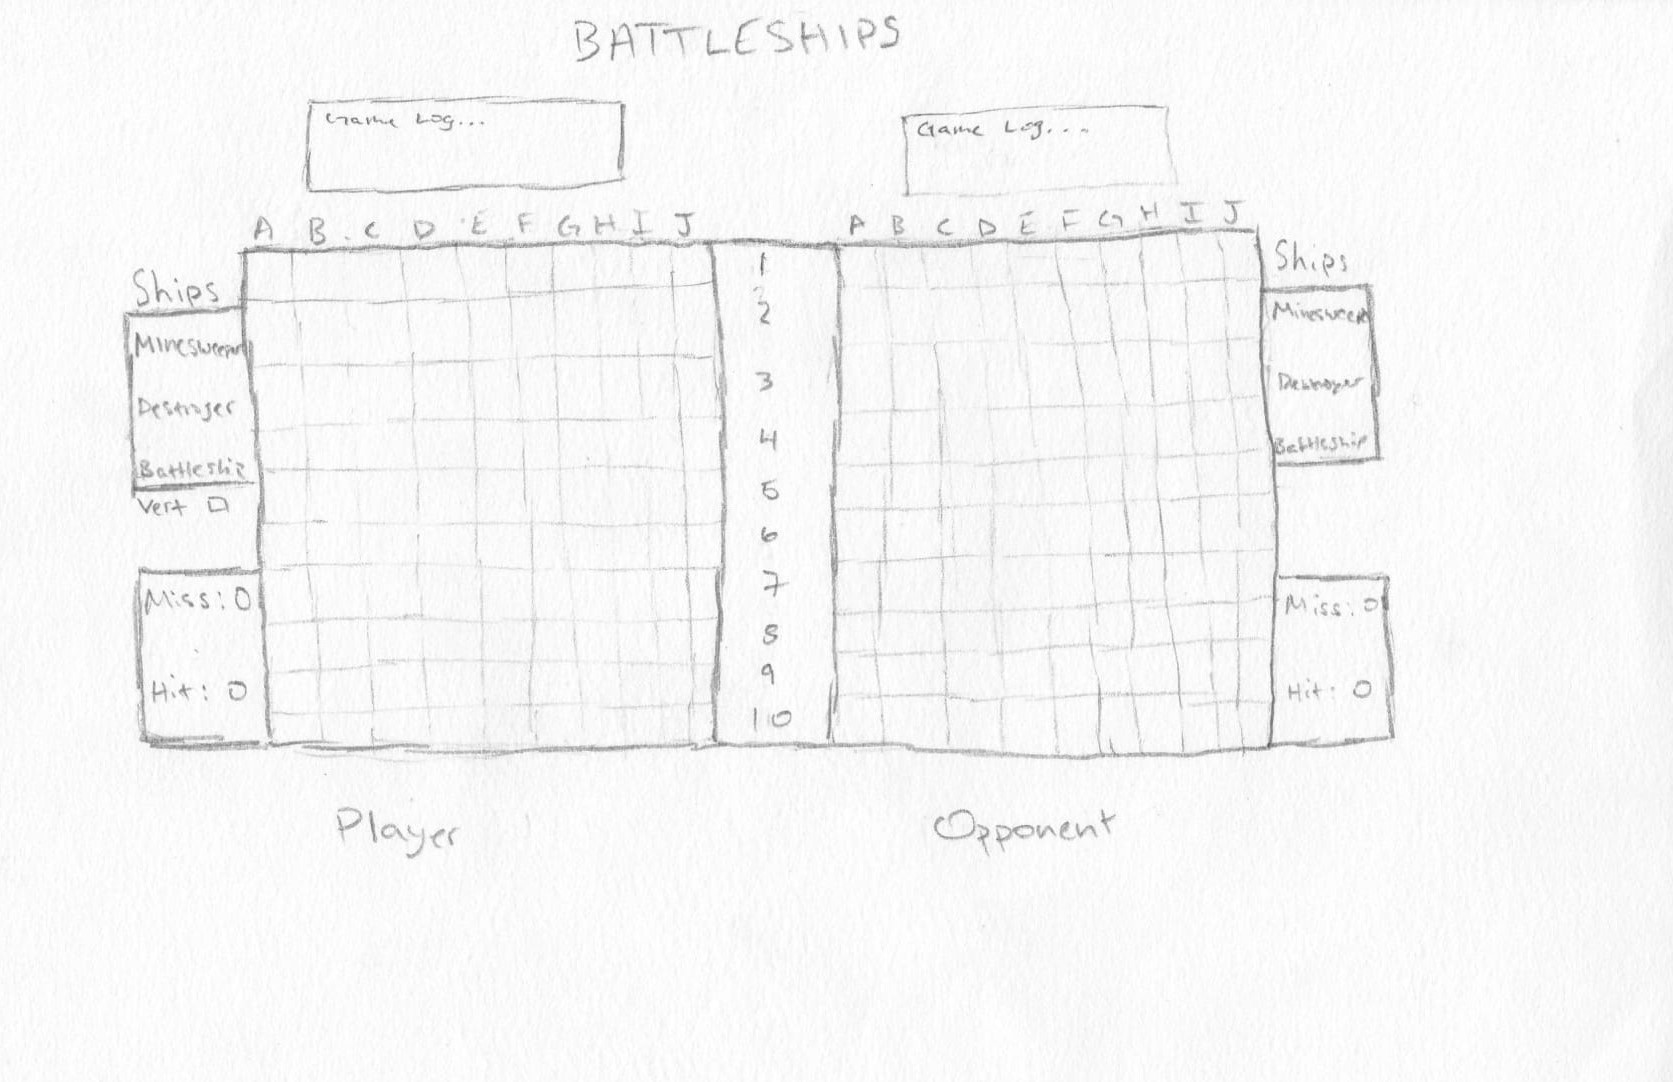 BATTLESHIPS
Game Log...
Game Log...
A B C D E F G H I J
A B C D E F G H I J
Ships
Minesweeper
Destroyer
Battleship
Vert
Miss: 0
Hit: 0
1
2
3
4
5
6
7
8
9
10
Ships
Minesweeper
Destroyer
Battleship
Miss: 0
Hit: 0
Player
Opponent